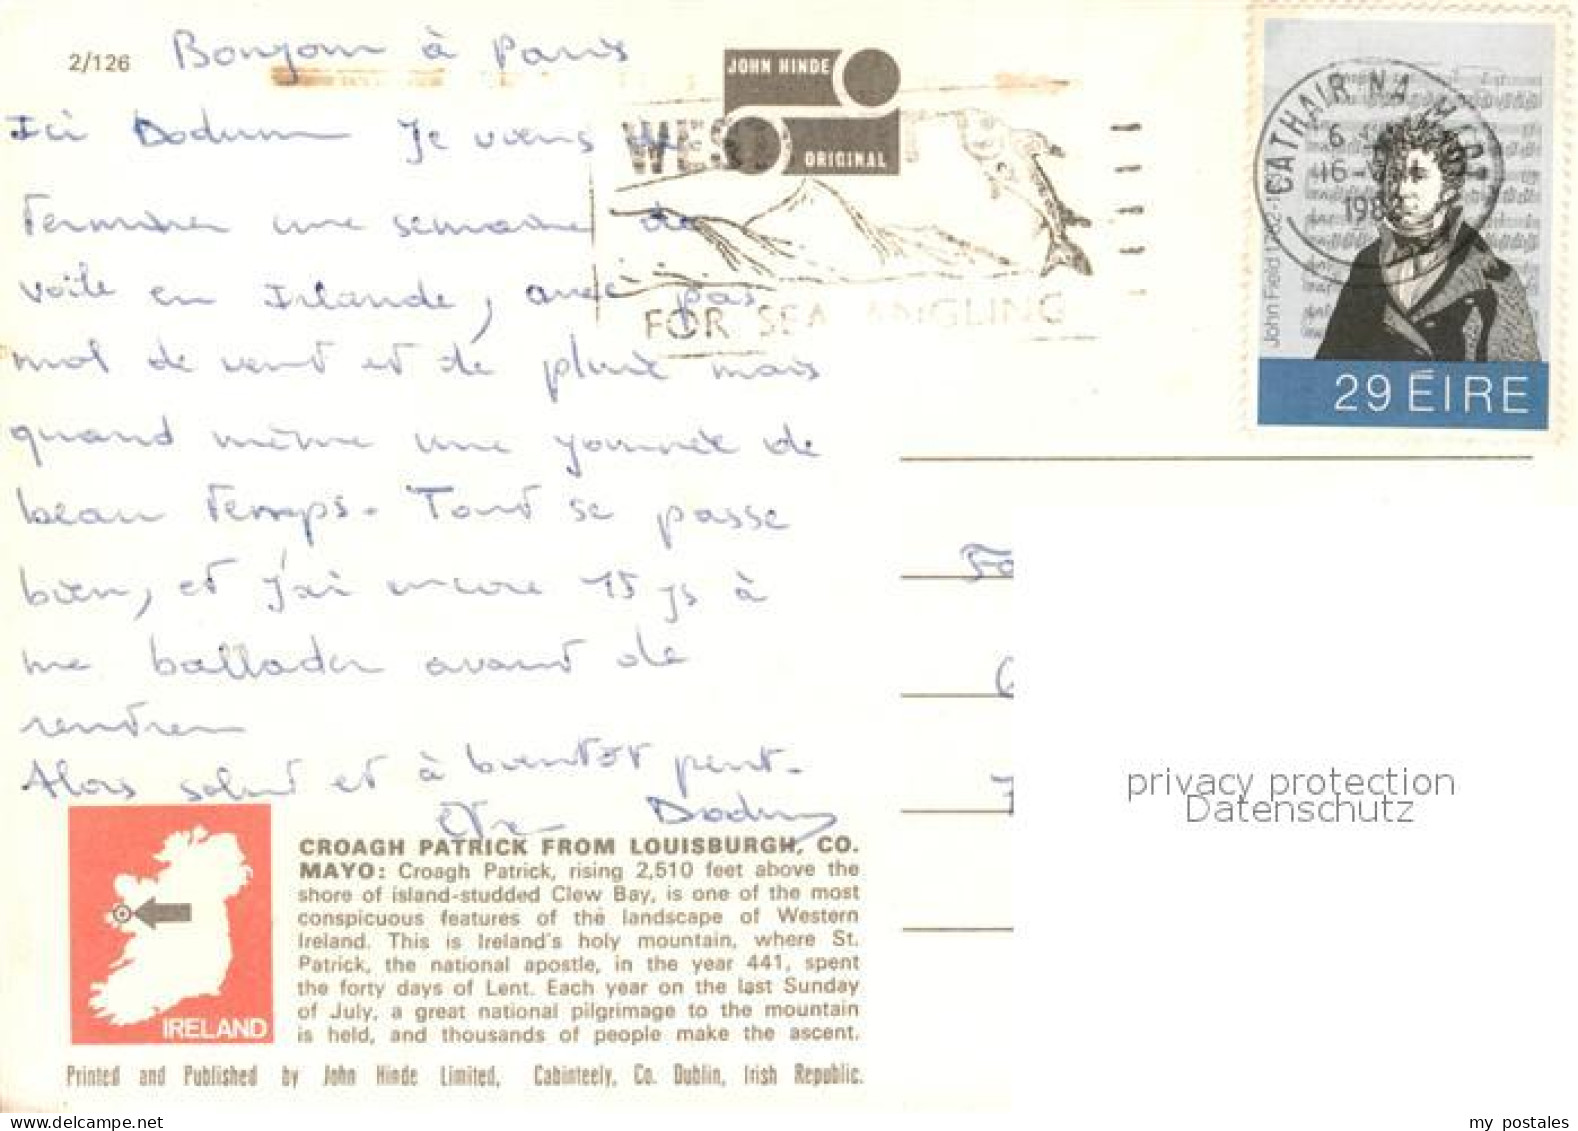 2/126
Bonjour à Paris
JOHN HINDE
ORIGINAL
WES
FOR SEA ANGLING
CATHAIR NA MART
16
John Field 1782-18
29 ÉIRE
Ici Je viens de
terminer une semaine de
voile en Irlande, avec pas
mal de vent et de pluie mais
quand même une journée de
beau temps. Tout se passe
bien, et j'ai encore 15 js à
me ballader avant de
rentrer
Alors salut et à bientôt peut-
être
CROAGH PATRICK FROM LOUISBURGH, CO.
MAYO: Croagh Patrick, rising 2,510 feet above the
shore of island-studded Clew Bay, is one of the most
conspicuous features of the landscape of Western
Ireland. This is Ireland's holy mountain, where St.
Patrick, the national apostle, in the year 441, spent
the forty days of Lent. Each year on the last Sunday
of July, a great national pilgrimage to the mountain
is held, and thousands of people make the ascent.
IRELAND
Printed and Published by John Hinde Limited, Cabinteely, Co. Dublin, Irish Republic.
privacy protection
Datenschutz
my postales